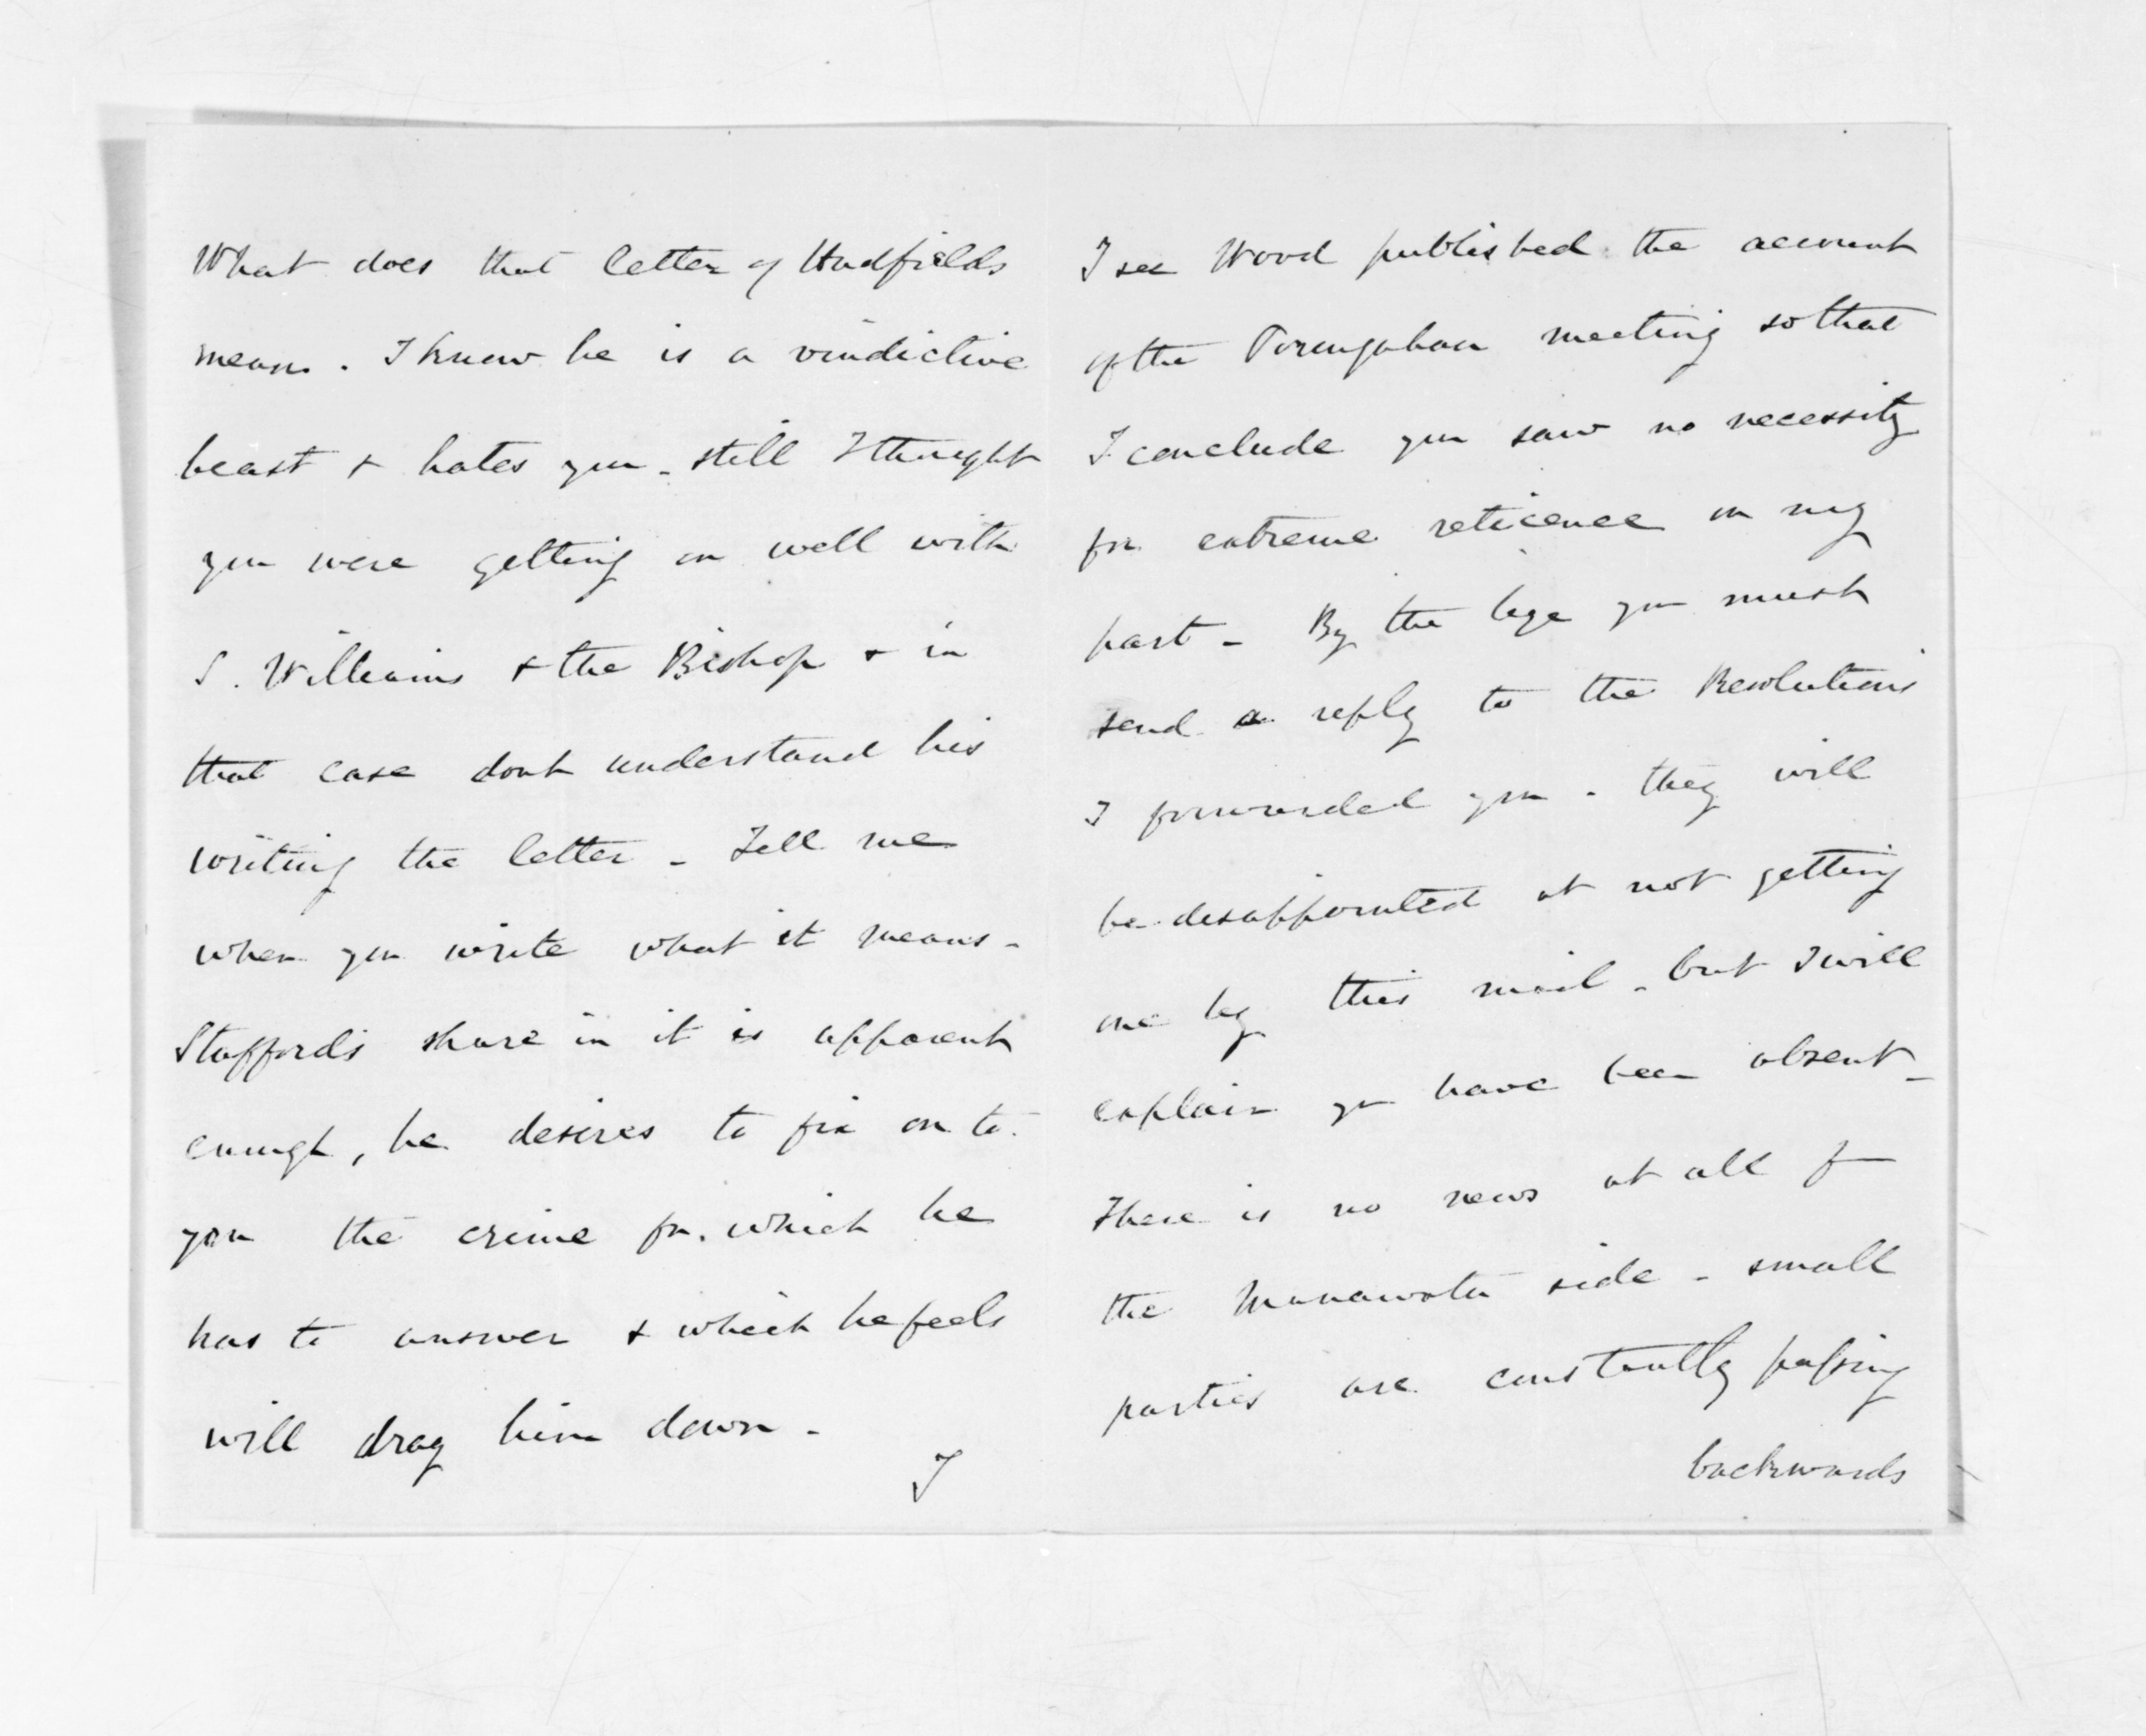 What does that letter of Hadfields
mean. I know he is a vindictive
beast & hates you - still I thought
you were getting on well with
S. Williams & the Bishop & in
that case dont understand his
writing the letter - Tell me
when you write what it means -
Staffords share in it is apparent
enough, he desires to fix on to
you the crime for which he
has to answer & which he feels
will drag him down -
I
I see Wood published the account
of the Porangahau meeting so that
I conclude you saw no necessity
for extreme reticence on my
part - By the bye you must
send a reply to the Resolutions
I forwarded you - they will
be disappointed at not getting
one by this mail - but I will
explain you have been absent -
There is no news at all fm
the Manawatu side - small
parties are constantly passing
backwards